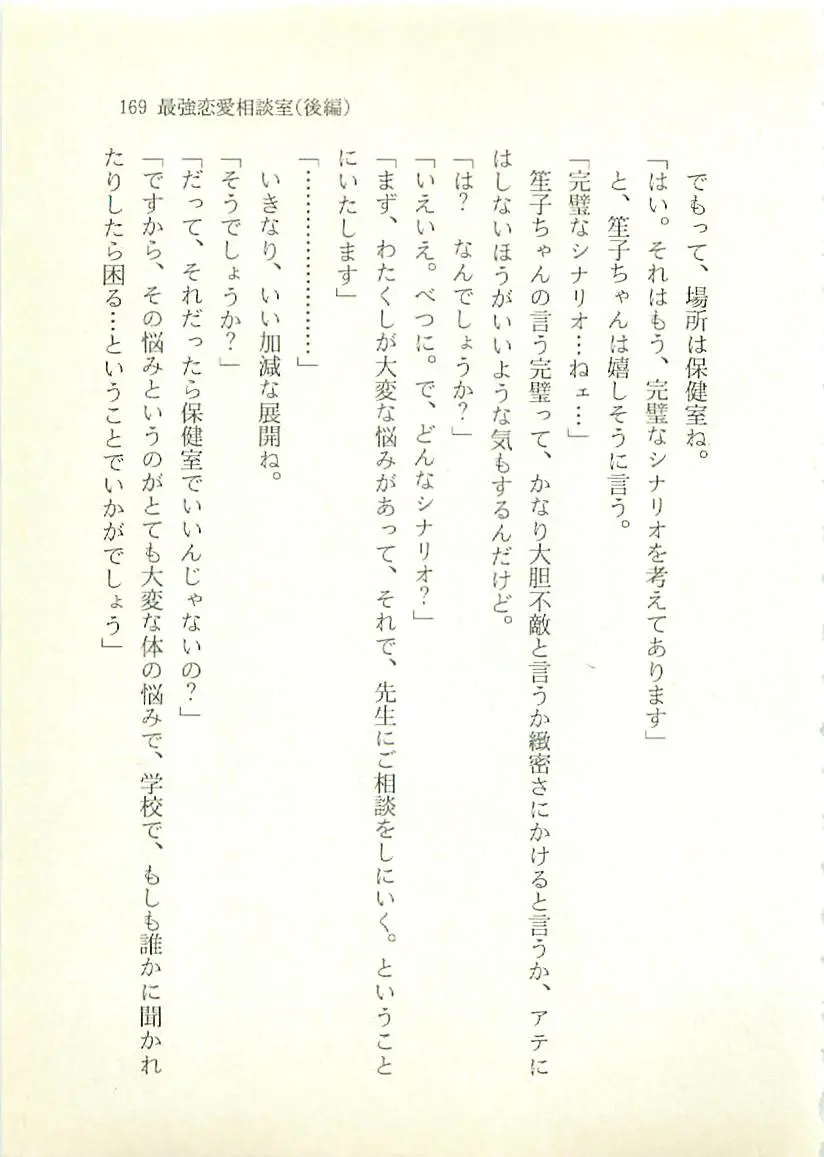 169 最強恋愛相談室(後編)
でもって、場所は保健室ね。
「はい。それはもう、完璧なシナリオを考えてあります」
と、笙子ちゃんは嬉しそうに言う。
「完璧なシナリオ…ねェ…」
笙子ちゃんの言う完璧って、かなり大胆不敵と言うか緻密さにかけると言うか、アテに
はしないほうがいいような気もするんだけど。
「は？　なんでしょうか？」
「いえいえ。べつに。で、どんなシナリオ？」
「まず、わたくしが大変な悩みがあって、それで、先生にご相談をしにいく。ということ
にいたします」
「……………………」
いきなり、いい加減な展開ね。
「そうでしょうか？」
「だって、それだったら保健室でいいんじゃないの？」
「ですから、その悩みというのがとても大変な体の悩みで、学校で、もしも誰かに聞かれ
たりしたら困る…ということでいかがでしょう」